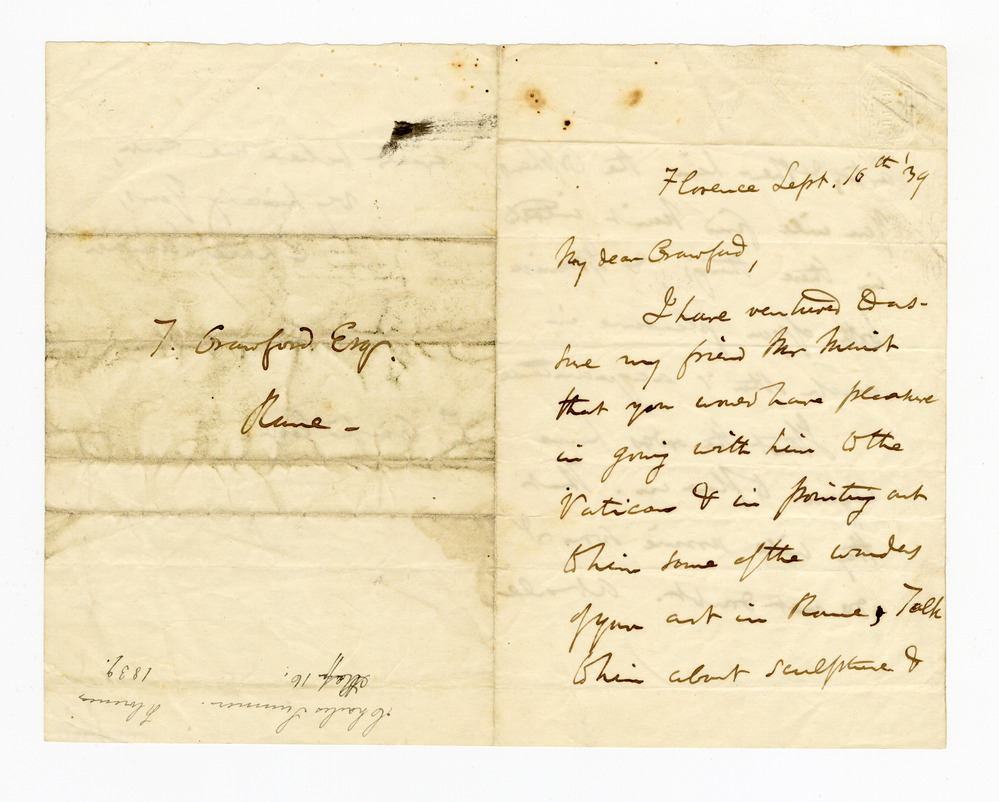 T. Crawford Esq.
Rome -
Charles Sumner.
Florence,
16.
1839.
Florence Sept. 16th '39
My dear Crawford,
I have ventured to as-
sure my friend Mr
that you would have pleasure
in going with him to the
Vatican & in pointing out
to him some of the wonders
of your art in Rome, Talk
to him about sculpture &